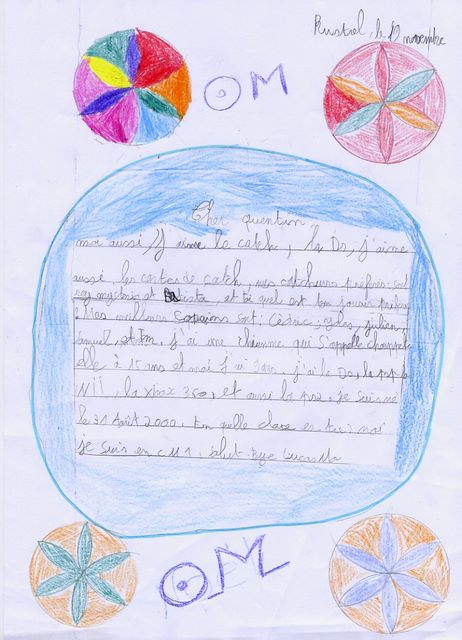 Rustrel, le 12 novembre
OM
Cher quentin
moi aussi j'aime le catch, la Ds, j'aime
aussi, les cartes de catch, mes catcheurs préférés sont
rey mysterio et Batista, et toi quel est ton joueur préféré
? Mes meilleurs copains sont: Cédric, Ydas, julien,
samuel, et Tim, j'ai une chienne qui s'appelle
elle à 15 ans et moi j'ai 9 ans. j'ai la Ds, la psp la
Wii, la xbox 360, et aussi la ps2. je suis né
le 31 Août 2000. En quelle classe es tu? moi
je suis en cm1, salut-Bye Lucas
OM